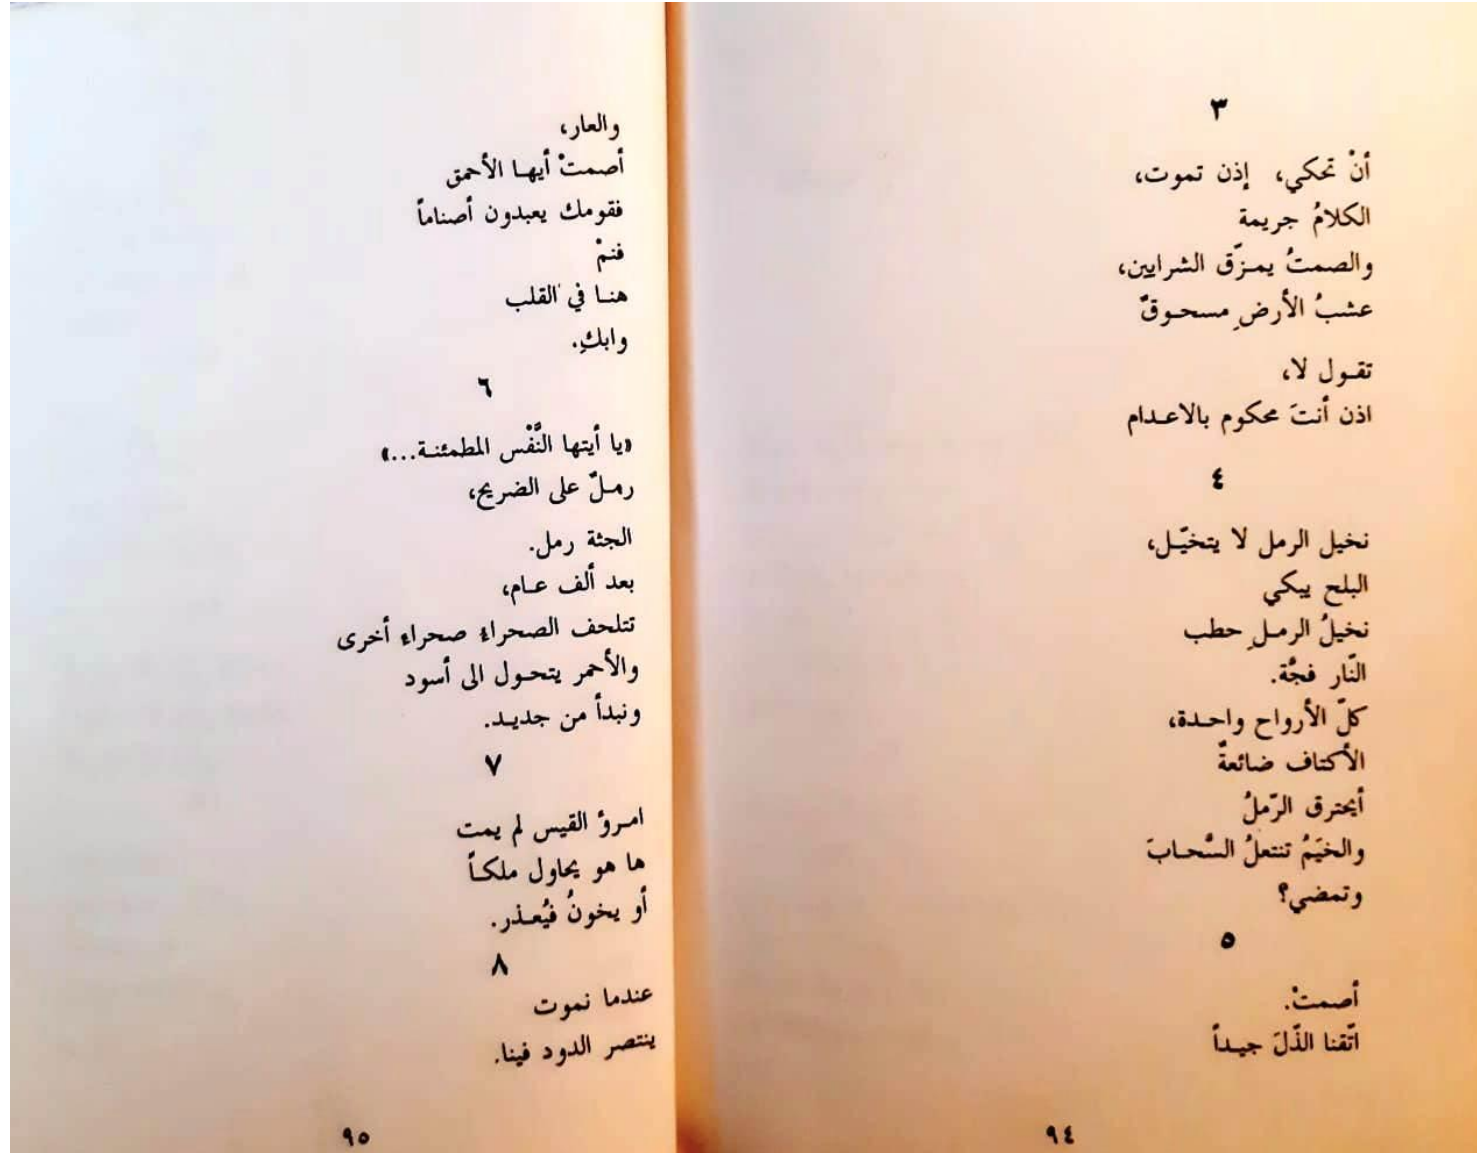 ٣
أنْ تحكي، إذن تموت،
الكلامُ جريمة
والصمتُ يمزّق الشرايين،
عشبُ الأرضِ مسحوقٌ
تقول لا،
اذن أنتَ محكوم بالاعدام
٤
نخيل الرمل لا يتخيّل،
البلح يبكي
نخيلُ الرملِ حطب
النّار فجَّة.
كلّ الأرواح واحدة،
الأكتاف ضائعةٌ
أيحترق الرّملُ
والخيَمُ تنتعلُ السَّحابَ
وتمضي؟
٥
أصمتْ.
اتّقنا الذّلَ جيداً
٩٤
والعار،
أصمتْ أيها الأحمق
فقومك يعبدون أصناماً
فنمْ
هنا في القلب
وابكِ.
٦
«يا أيتها النَّفْس المطمئنة...»
رملٌ على الضريح،
الجثة رمل.
بعد ألف عام،
تتلحف الصحراء صحراء أخرى
والأحمر يتحول الى أسود
ونبدأ من جديد.
٧
امرؤ القيس لم يمت
ها هو يحاول ملكاً
أو يخونُ فيُعذر.
٨
عندما نموت
ينتصر الدود فينا.
٩٥